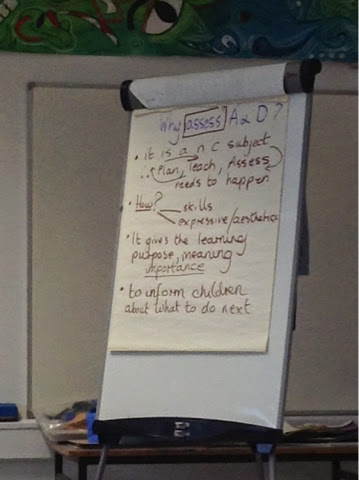 Why assess A & D?
• it is a n c subject
∴ Plan, Teach, Assess
needs to happen
• How? skills
expressive/aesthetics
• It gives the learning
purpose, meaning
importance
• to inform children
about what to do next